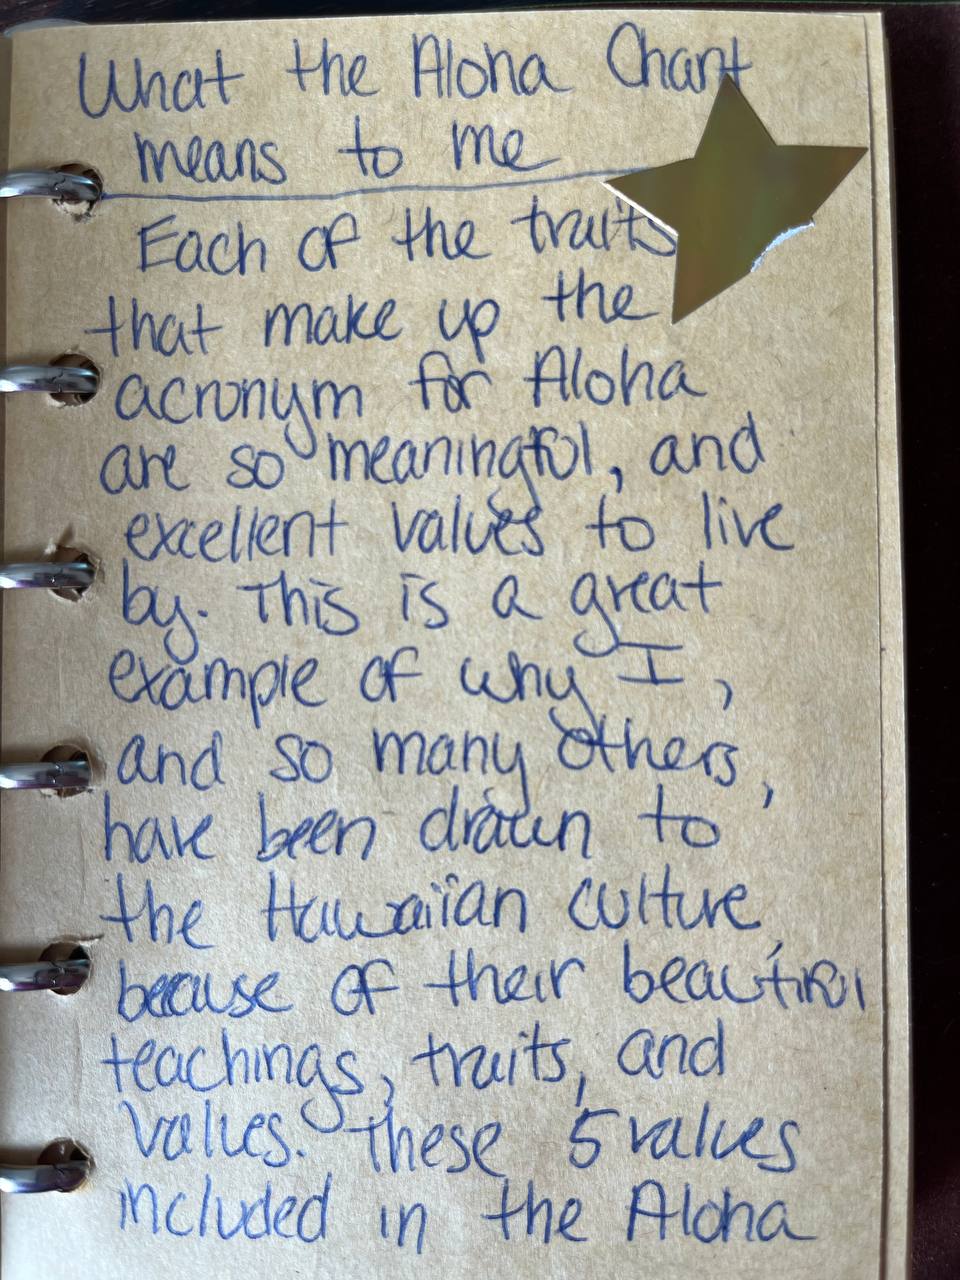 What the Aloha Chant
means to me
Each of the traits
that make up the
acronym for Aloha
are so meaningful, and
excellent values to live
by. This is a great
example of why I,
and so many others,
have been drawn to
the Hawaiian culture,
because of their beautiful
teachings, traits, and
values. These 5 values
included in the Aloha